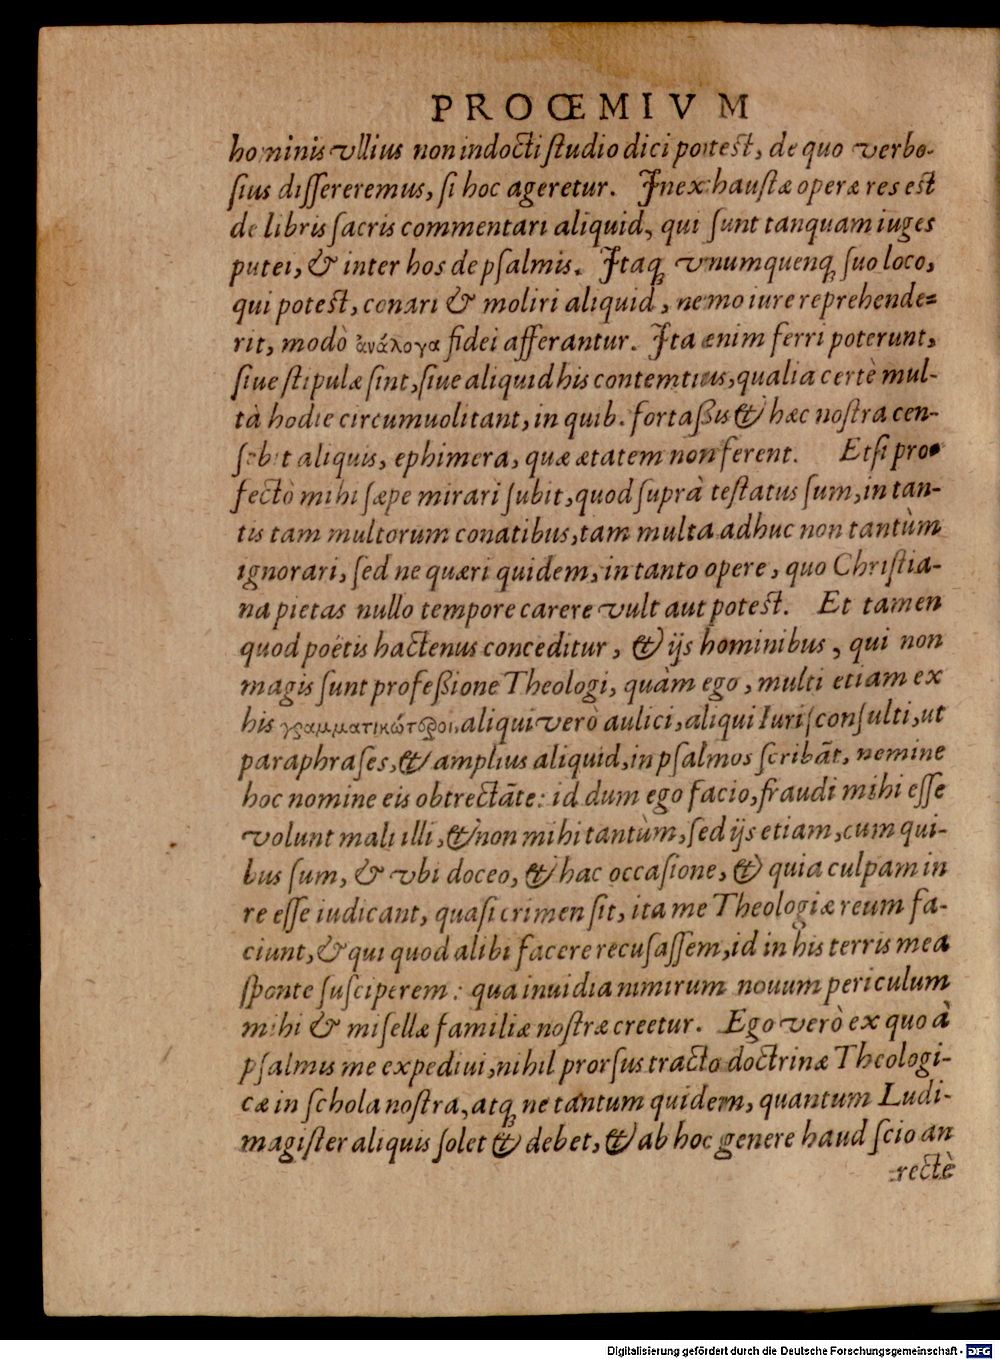 PROŒMIVM
hominis vllius non indocti ſtudio dici poteſt, de quo verbo-
ſius diſſereremus, ſi hoc ageretur. Inexhauſtæ operæ res eſt
de libris ſacris commentari aliquid, qui ſunt tanquam iuges
putei, & inter hos de pſalmis. Itaq; vnumquenq; ſuo loco,
qui poteſt, conari & moliri aliquid, nemo iure reprehende=
rit, modò ἀνάλογα fidei afferantur. Ita enim ferri poterunt,
ſiue ſtipulæ ſint, ſiue aliquid his contemtius, qualia certè mul-
ta hodie circumuolitant, in quib. fortaßis & hæc noſtra cen-
ſebit aliquis, ephimera, quæ ætatem non ferent. Etſi pro-
fectò mihi ſæpe mirari ſubit, quod ſuprà teſtatus ſum, in tan-
tis tam multorum conatibus, tam multa adhuc non tantùm
ignorari, ſed ne quæri quidem, in tanto opere, quo Chriſtia-
na pietas nullo tempore carere vult aut poteſt. Et tamen
quod poëtis hactenus conceditur, & ijs hominibus, qui non
magis ſunt profeßione Theologi, quàm ego, multi etiam ex
his γραμματικώτεροι, aliqui verò aulici, aliqui Iuriſconſulti, ut
paraphraſes, & amplius aliquid, in pſalmos ſcribāt, nemine
hoc nomine eis obtrectāte: id dum ego facio, fraudi mihi eſſe
volunt mali illi, & non mihi tantùm, ſed ijs etiam, cum qui-
bus ſum, & vbi doceo, & hac occaſione, & quia culpam in
re eſſe iudicant, quaſi crimen ſit, ita me Theologiæ reum fa-
ciunt, & qui quod alibi facere recuſaſſem, id in his terris mea
ſponte ſuſciperem: qua inuidia nimirum nouum periculum
mihi & miſellæ familiæ noſtræ creetur. Ego verò ex quo à
pſalmis me expediui, nihil prorſus tracto doctrinæ Theologi-
cæ in ſchola noſtra, atq; ne tantum quidem, quantum Ludi-
magiſter aliquis ſolet & debet, & ab hoc genere haud ſcio an
rectè
Digitalisierung gefördert durch die Deutsche Forschungsgemeinschaft - DFG